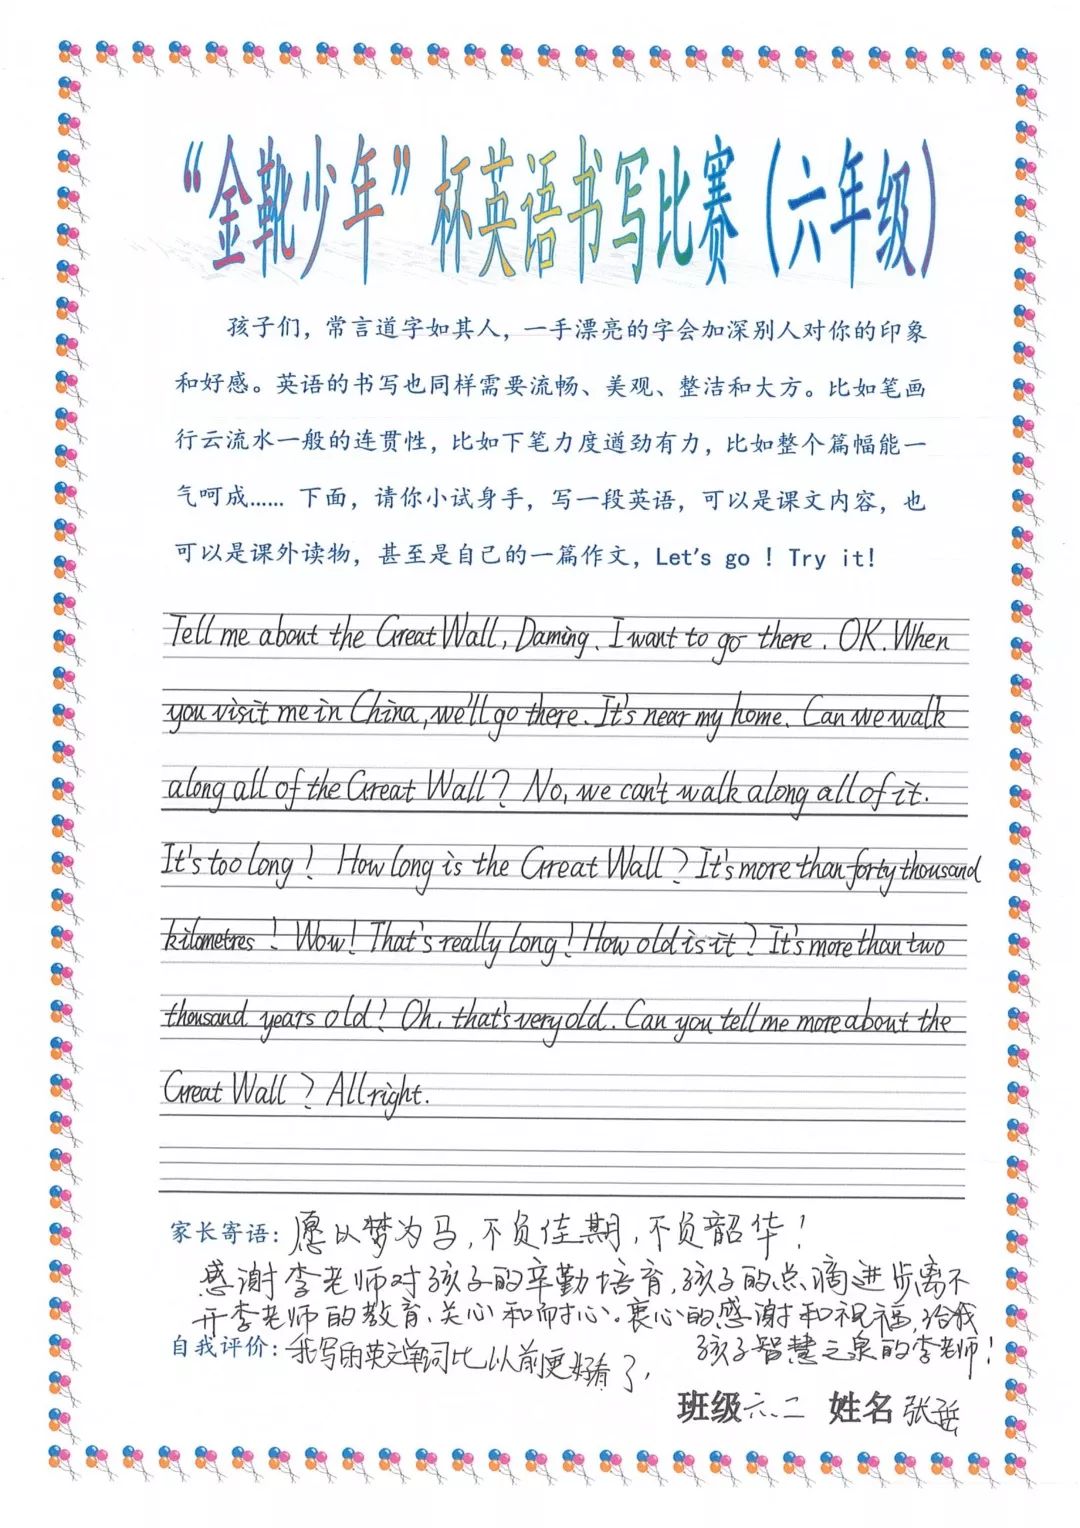 “金靴少年”杯英语书写比赛（六年级）
孩子们，常言道字如其人，一手漂亮的字会加深别人对你的印象
和好感。英语的书写也同样需要流畅、美观、整洁和大方。比如笔画
行云流水一般的连贯性，比如下笔力度遒劲有力，比如整个篇幅能一
气呵成…… 下面，请你小试身手，写一段英语，可以是课文内容，也
可以是课外读物，甚至是自己的一篇作文，Let's go ! Try it!
Tell me about the Great Wall, Daming. I want to go there. OK. When
you visit me in China, we'll go there. It's near my home. Can we walk
along all of the Great Wall? No, we can't walk along all of it.
It's too long! How long is the Great Wall? It's more than forty thousand
kilometres! Wow! That's really long! How old is it? It's more than two
thousand years old! Oh, that's very old. Can you tell me more about the
Great Wall? All right.
家长寄语：愿以梦为马，不负佳期，不负韶华！
感谢李老师对孩子的辛勤培育，孩子的点滴进步离不
开李老师的教育、关心和耐心。衷心的感谢和祝福，给我
孩子智慧之泉的李老师！
自我评价：我写的英文单词比以前更好看了，
班级六.二 姓名 张